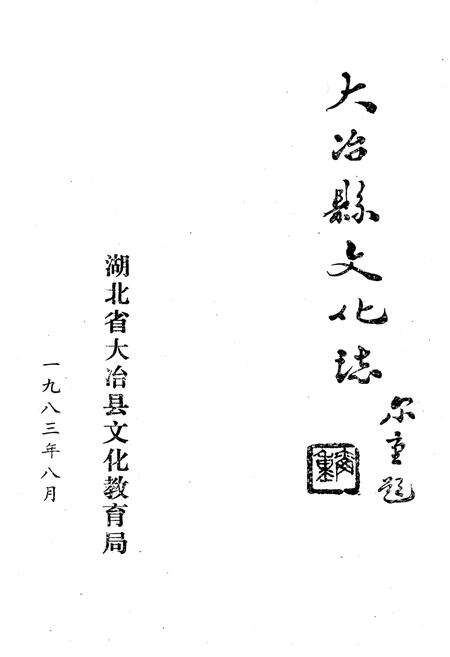 大冶縣文化誌
尔重题
湖北省大冶县文化教育局
一九八三年八月